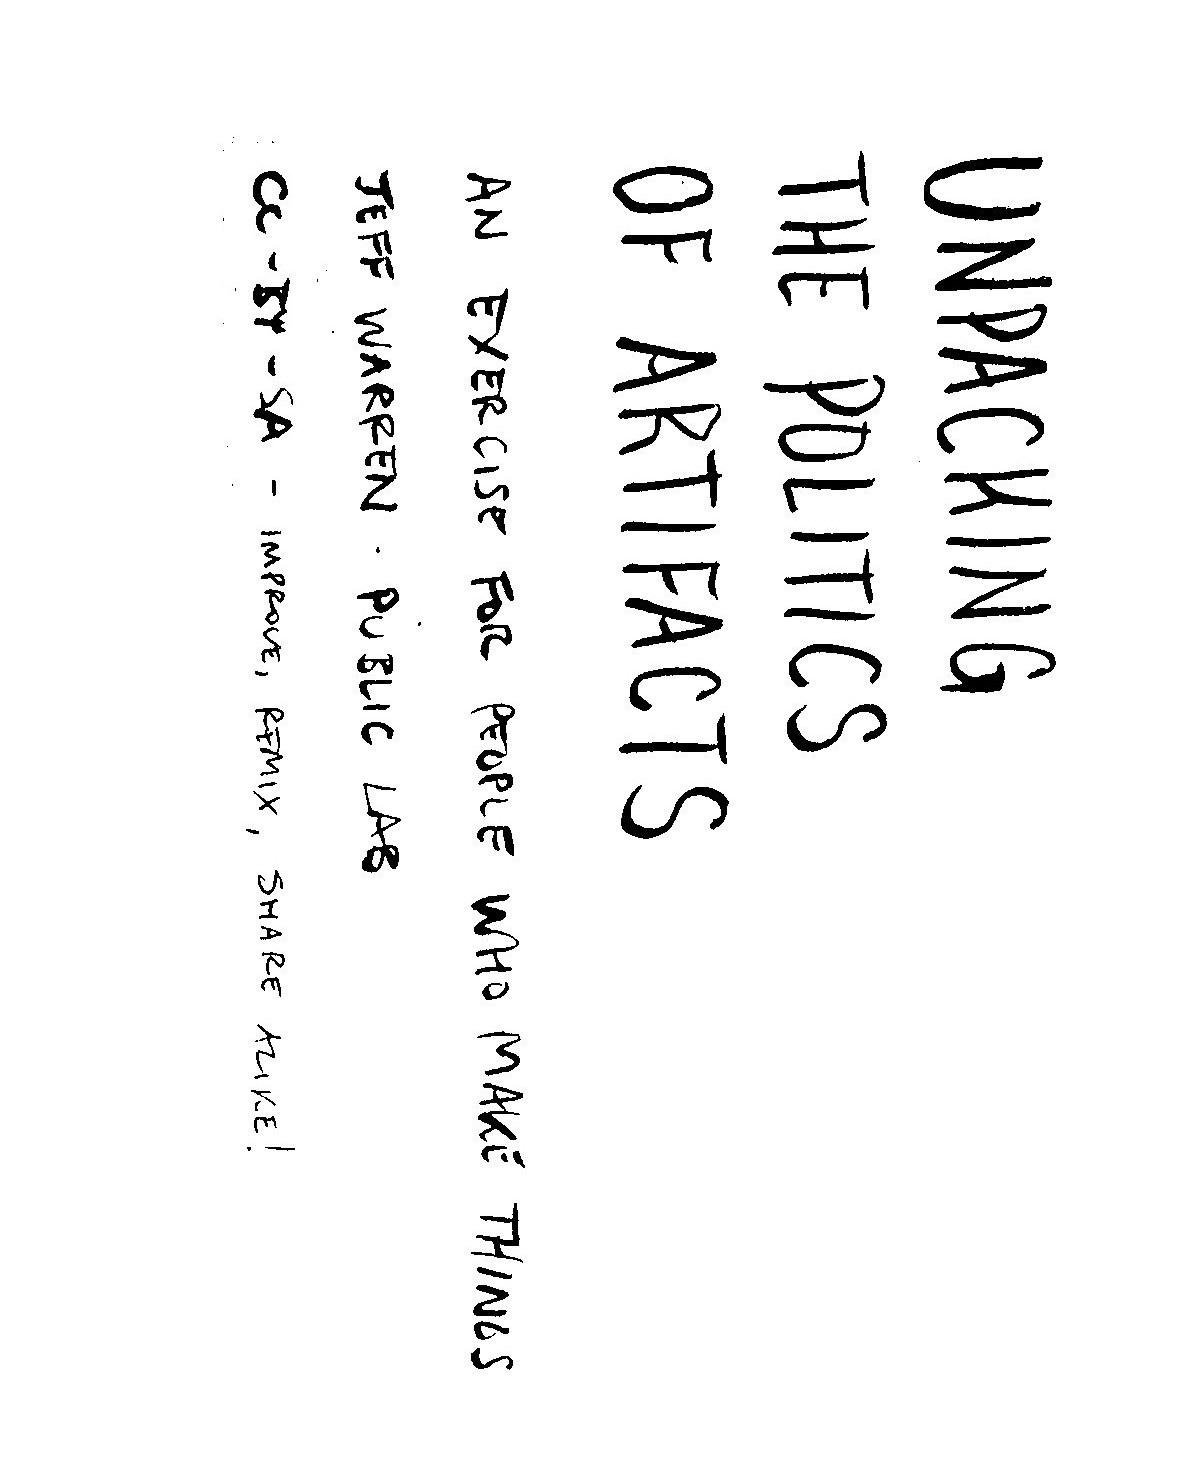 UNPACKING
THE POLITICS
OF ARTIFACTS
AN EXERCISE FOR PEOPLE WHO MAKE THINGS
JEFF WARREN · PUBLIC LAB
CC-BY-SA - IMPROVE, REMIX, SHARE ALIKE!